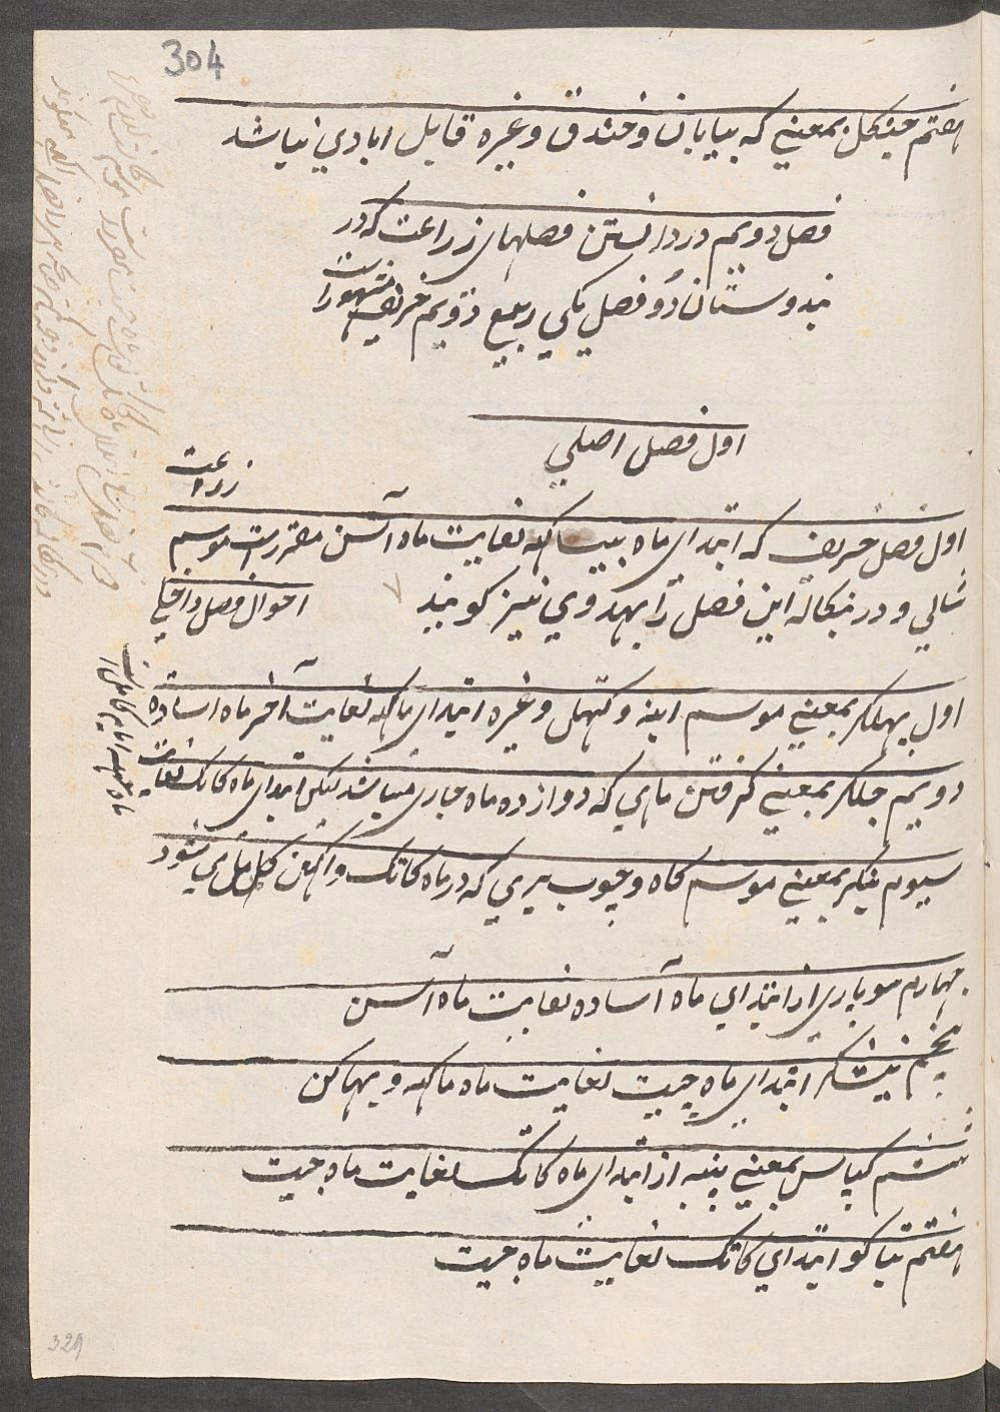 304
هفتم جنکل بمعنے که بیابان و خندق و غیره قابل ابادي نباشد
فصل دویم در دانستن فصلهای زراعت که در
هندوستان دو فصل یکي ربیع دویم خریف مشهورست
اول فصل اصلي
زراعت
اول فصل خریف که ابتدای ماه بیساکهه لغایت ماه آسن مقررست موسم
شالي و در بنکاله این فصل را بهدوي نیز کویند
احوال فصل داخلي
اول پهلکر بمعنے موسم انبه و کتهل و غیره ابتدای ماکهه لغایت آخر ماه اساده
دویم جلکر بمعنے کرفتن ماهي که دوازده ماه جاری میباشد لیکن ابتدای ماه کاتک لغایت
سیوم بنکر بمعنے موسم کاه و چوب بیري که در ماه کاتک و اکهن کل مل مي شود
چهارم موباري از ابتداي ماه آساده لغایت ماه آسن
پنجم نیشکر ابتدای ماه چیت لغایت ماه ماکهه و پهاکن
ششم کپاس بمعنے پنبه از ابتدای ماه کاتک لغایت ماه چیت
هفتم تنباکو ابتداي کاتک لغایت ماه چیت
329